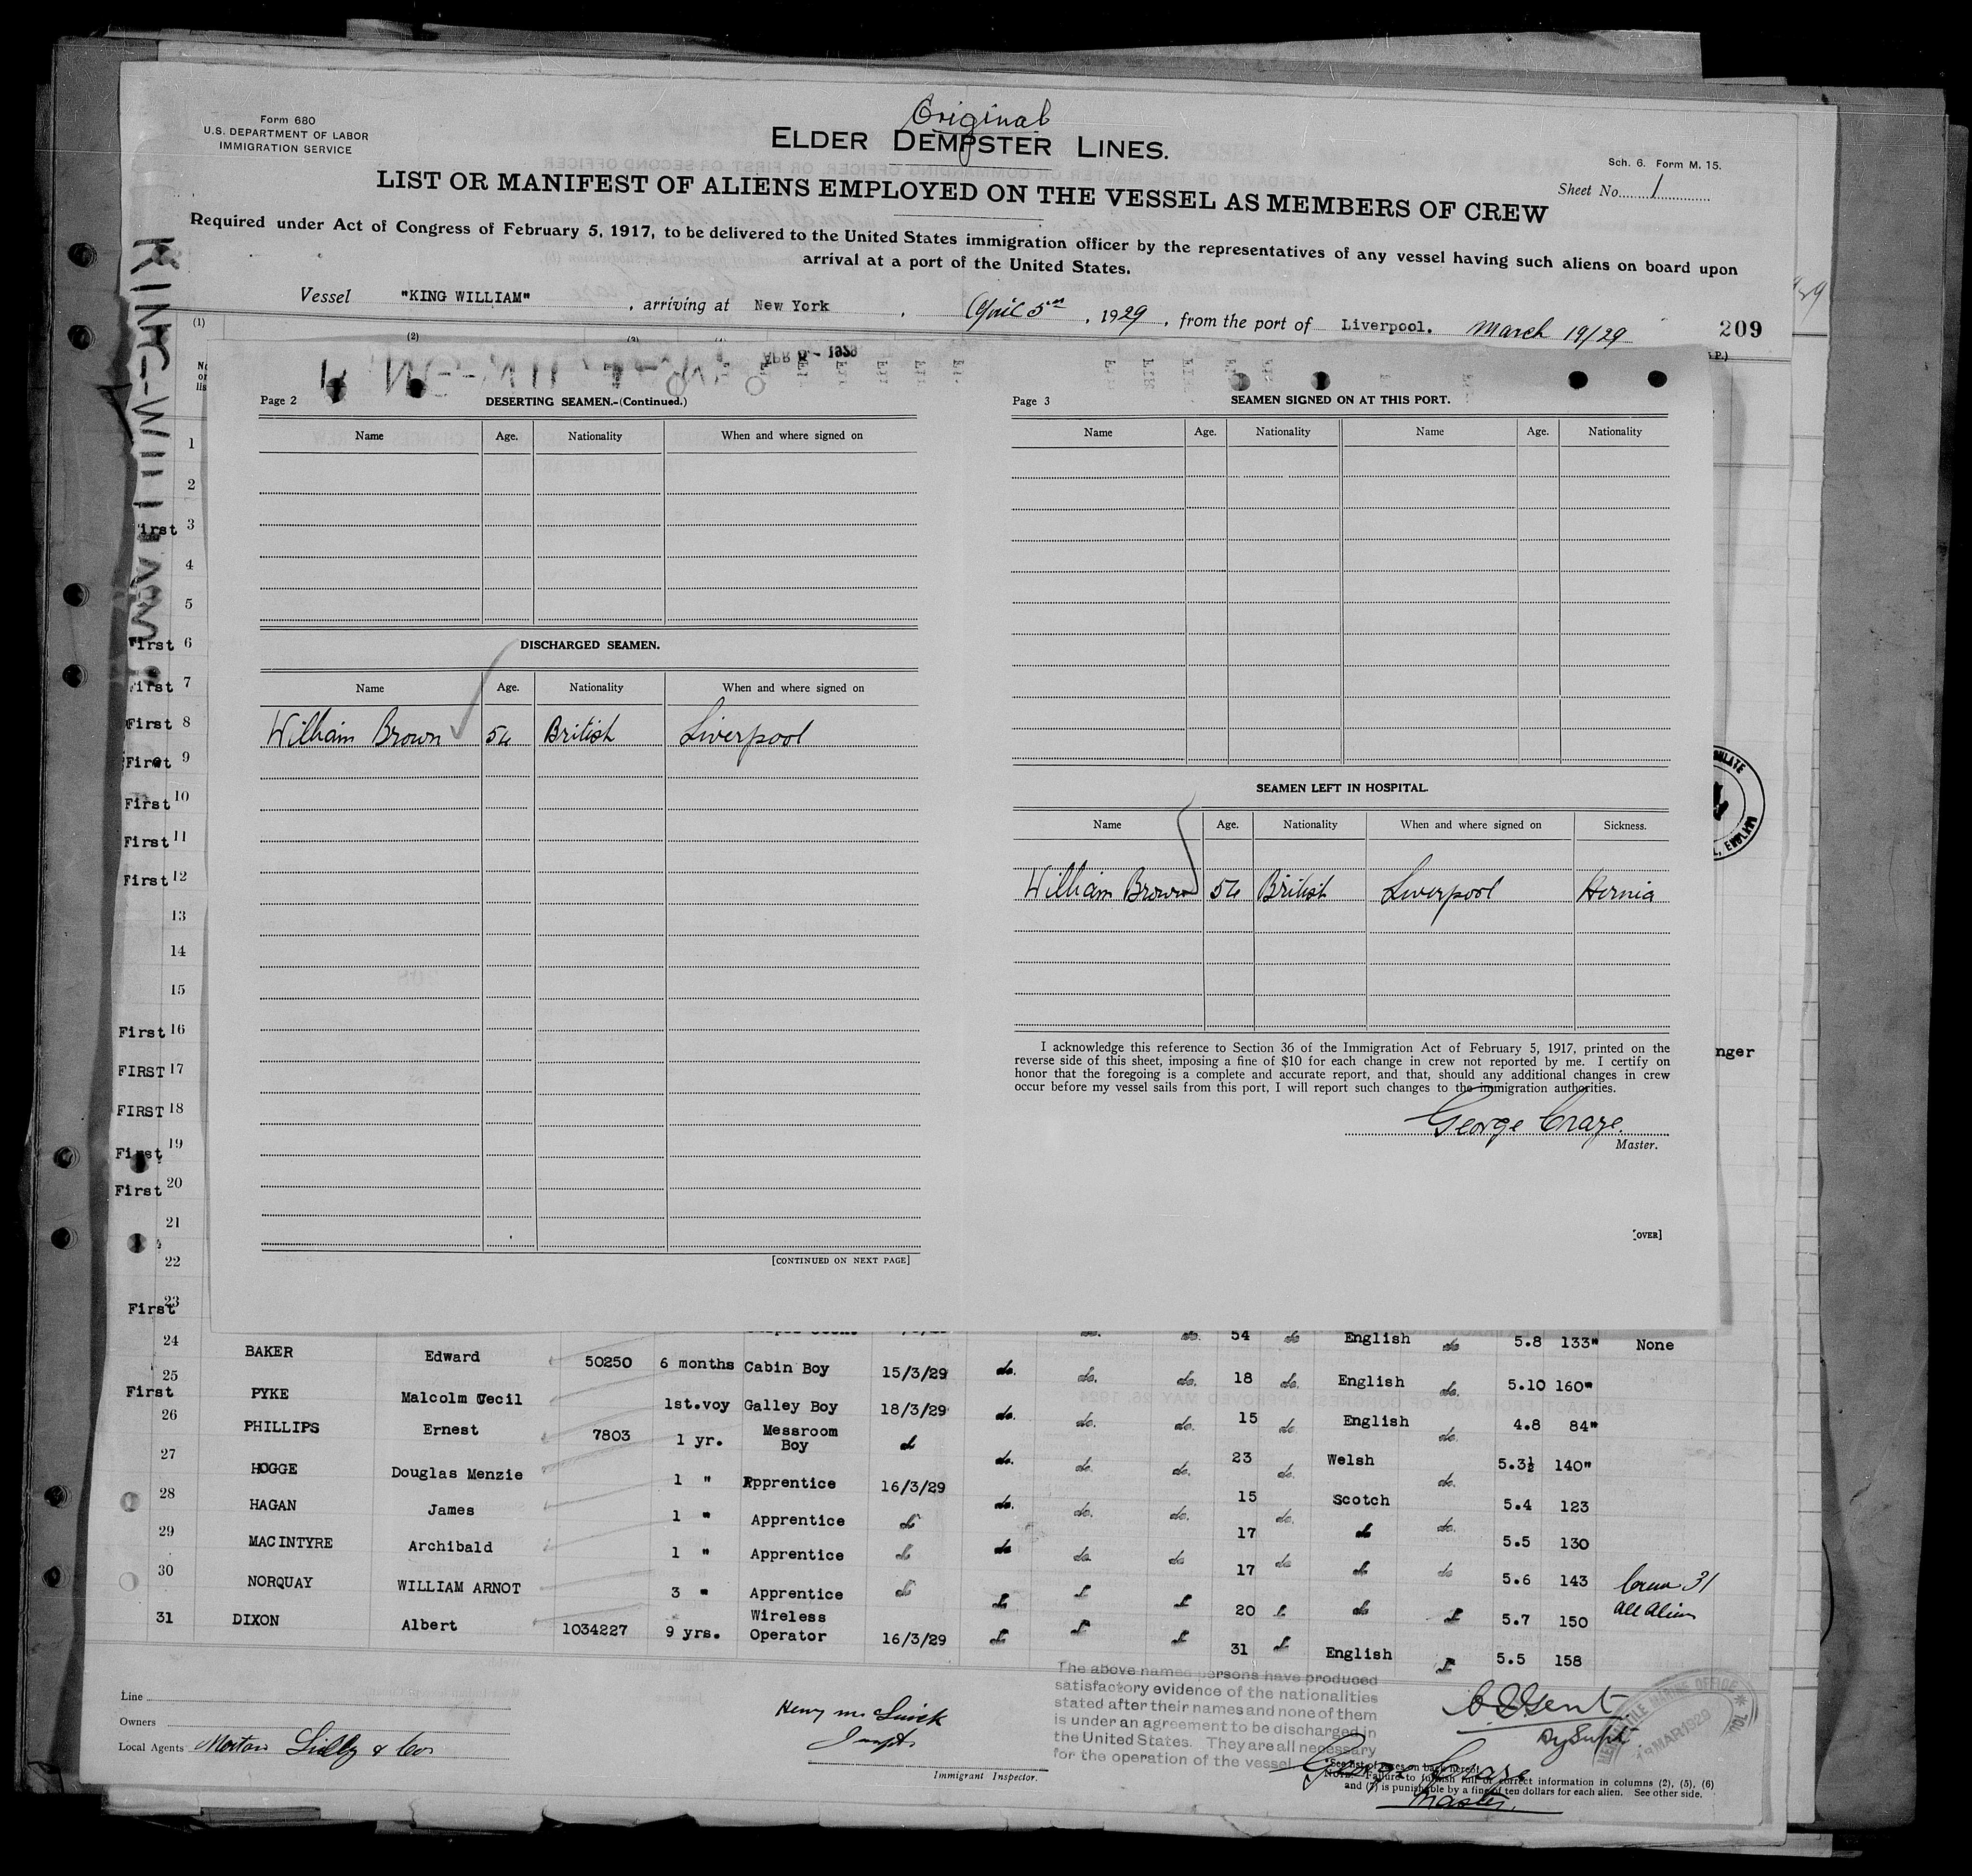 Form 680
U.S. DEPARTMENT OF LABOR
IMMIGRATION SERVICE
Original
ELDER DEMPSTER LINES.
Sch. 6. Form M. 15.
Sheet No. 1
LIST OR MANIFEST OF ALIENS EMPLOYED ON THE VESSEL AS MEMBERS OF CREW
Required under Act of Congress of February 5, 1917, to be delivered to the United States immigration officer by the representatives of any vessel having such aliens on board upon
arrival at a port of the United States.
Vessel "KING WILLIAM", arriving at New York, April 5th, 1929, from the port of Liverpool. March 19/29
209
(1) (2) (3)
KING-WILLIAM
APR 5 - 1929
Page 2 DESERTING SEAMEN.-(Continued.)
Name Age. Nationality When and where signed on
DISCHARGED SEAMEN.
Name Age. Nationality When and where signed on
William Brown 54 British Liverpool
[CONTINUED ON NEXT PAGE]
Page 3 SEAMEN SIGNED ON AT THIS PORT.
Name Age. Nationality Name Age. Nationality
SEAMEN LEFT IN HOSPITAL.
Name Age. Nationality When and where signed on Sickness.
William Brown 54 British Liverpool Hernia
I acknowledge this reference to Section 36 of the Immigration Act of February 5, 1917, printed on the
reverse side of this sheet, imposing a fine of $10 for each change in crew not reported by me. I certify on
honor that the foregoing is a complete and accurate report, and that, should any additional changes in crew
occur before my vessel sails from this port, I will report such changes to the immigration authorities.
George Craze.
Master.
[OVER]
1
2
First 3
4
5
First 6
First 7
First 8
First 9
First 10
First 11
First 12
13
14
15
First 16
FIRST 17
FIRST 18
First 19
First 20
21
22
First 23
24 54 do English do 5.8 133" None
BAKER Edward 50250 6 months Cabin Boy 15/3/29 do. do. do. 18 do. English do. 5.10 160"
25
First PYKE Malcolm Cecil 1st.voy Galley Boy 18/3/29 do. do. do. 15 do English do. 4.8 84"
26
PHILLIPS Ernest 7803 1 yr. Messroom Boy do do. do. do. 23 do. Welsh do. 5.3½ 140"
27
HOGGE Douglas Menzie 1 " Apprentice 16/3/29 do. do. do. 15 do. Scotch do. 5.4 123
28
HAGAN James 1 " Apprentice do do do. do 17 do do do 5.5 130
29
MACINTYRE Archibald 1 " Apprentice do do do do 17 do do do 5.6 143
30
NORQUAY WILLIAM ARNOT 3 " Apprentice do do do do 20 do do do 5.7 150
31 DIXON Albert 1034227 9 yrs. Wireless Operator 16/3/29 do do do 31 do English do 5.5 158
Crew 31
all Alien
Line
Owners
Local Agents Morton Lilly & Co.
Immigrant Inspector.
The above named persons have produced
satisfactory evidence of the nationalities
stated after their names and none of them
is under an agreement to be discharged in
the United States. They are all necessary
for the operation of the vessel
Dy Supt.
MERCANTILE MARINE OFFICE
MAR 1929
George Craze
Master.
See list of races on back hereof
NOTE.—Failure to furnish full or correct information in columns (2), (5), (6)
and (7) is punishable by a fine of ten dollars for each alien. See other side.